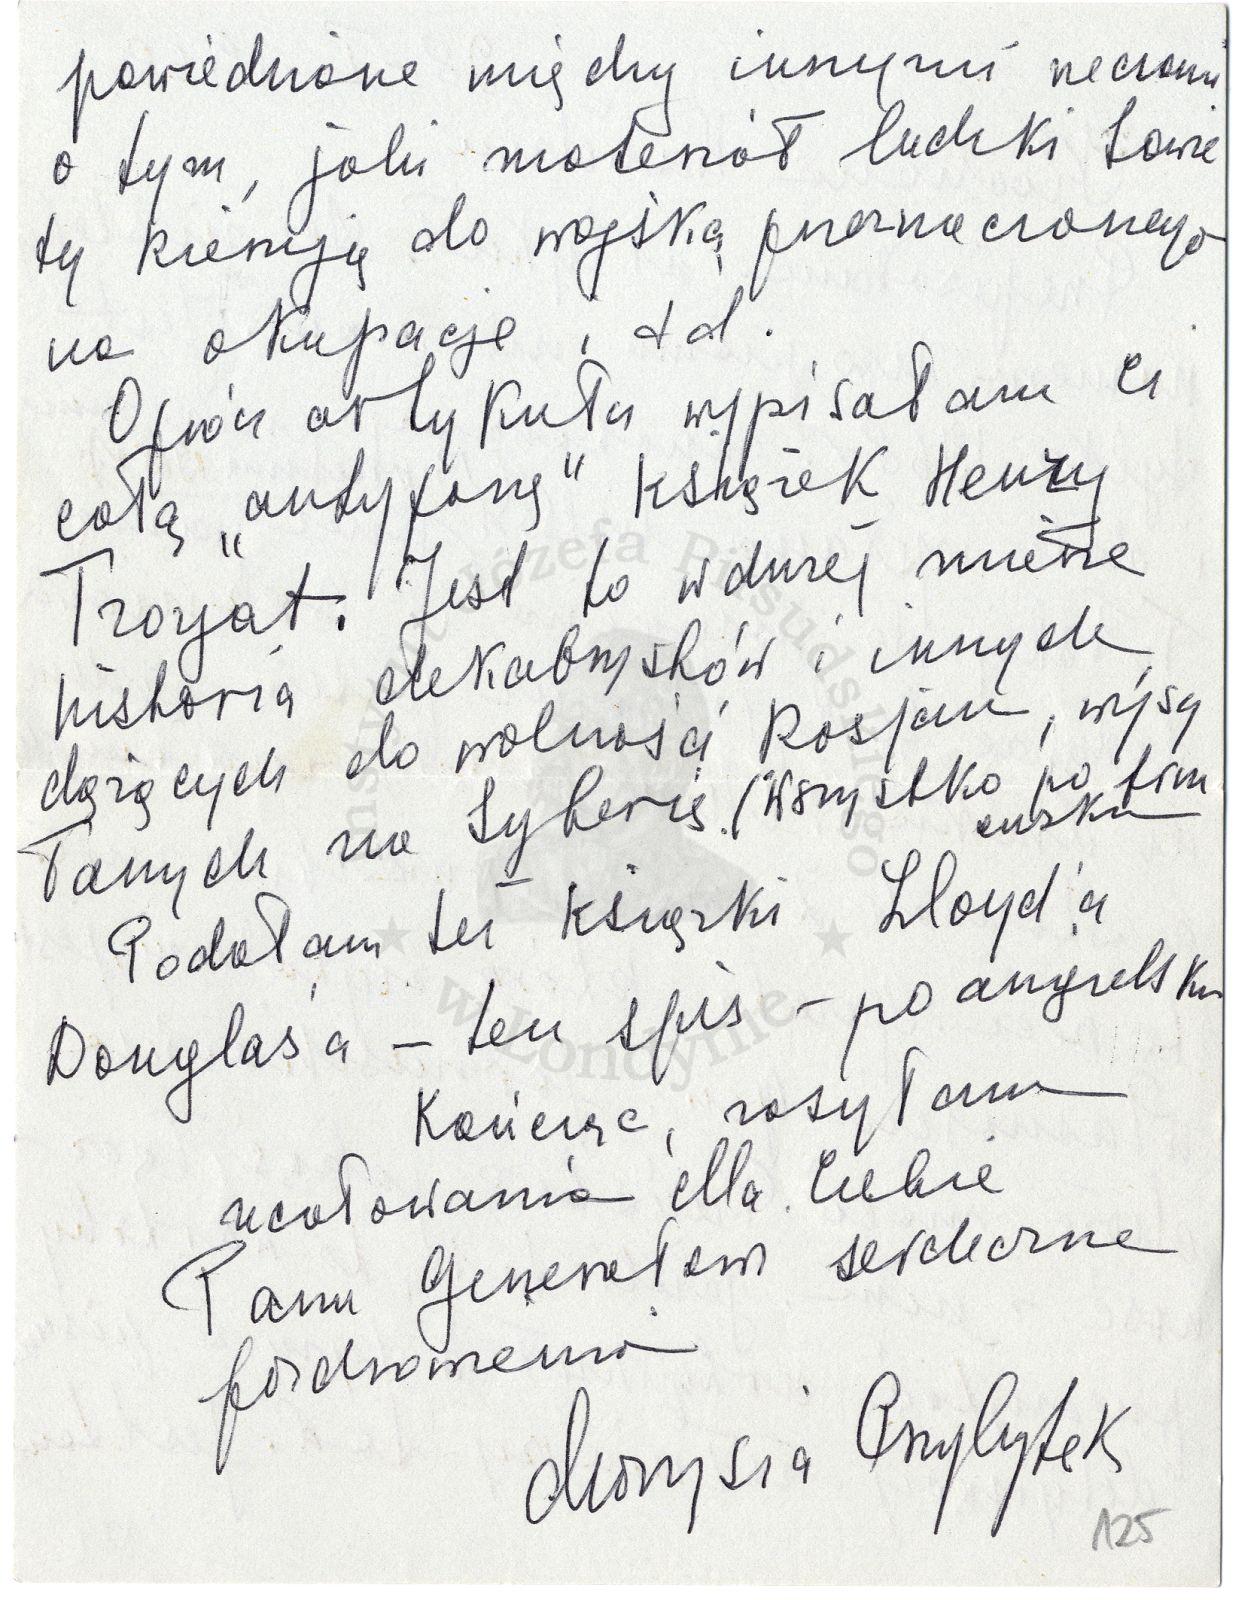 powiedziane między innymi rzeczami
o tym, jaki materiał ludzki Sowie
ty kierują do wojska przeznaczonego
na okupacje, i t d.
Oprócz artykułu wypisałam Ci
całą „antyfonę" książek Henry
Troyat. Jest to w dużej mierze
historia dekabrystów i innych
dążących do wolności Rosjan, wysy
łanych na Syberię. (Wszystko po fran
cusku
Podałam też książki Lloyd'a
Douglas'a – ten spis – po angielsku
Kończąc, zasyłam
ucałowania dla Ciebie
Panu Generałowi serdeczne
pozdrowienia
Dionysia Przybytek
125
Józefa Piłsudskiego
w Londynie